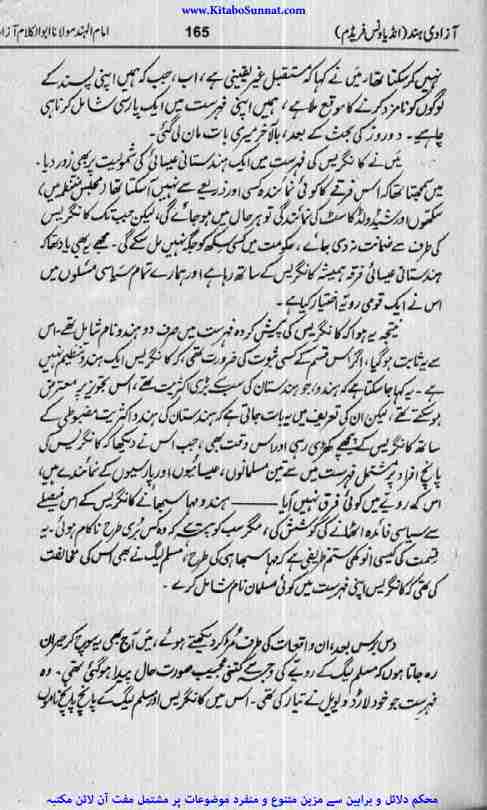 www.KitaboSunnat.com
آزادیِ ہند (انڈیا ونس فریڈم) 165 امام الہند مولانا ابوالکلام آزاد
نہیں کر سکتا تھا۔ میں نے کہا کہ مستقبل غیر یقینی ہے، اب، جب کہ ہمیں اپنی پسند کے
لوگوں کو نامزد کرنے کا موقع ملا ہے، ہمیں اپنی فہرست میں ایک پارسی شامل کرنا ہی
چاہیے۔ دو روز کی بحث کے بعد، بالآخر میری بات مان لی گئی۔
میں نے کانگریس کی فہرست میں ایک ہندستانی عیسائی کی شمولیت پر بھی زور دیا۔
میں سمجھتا تھا کہ اس فرقے کا کوئی نمائندہ کسی اور ذریعے سے نہیں آسکتا تھا (مجلس منتظمہ میں)
سکھوں اور شیڈولڈ کاسٹ کی نمائندگی تو ہر حال میں ہو جائے گی، لیکن جب تک کانگریس
کی طرف سے ضمانت نہ دی جائے، حکومت میں کسی سکھ کو جگہ نہیں مل سکے گی۔ مجھے بھی یاد تھا کہ
ہندستانی عیسائی فرقہ ہمیشہ کانگریس کے ساتھ رہا ہے اور ہمارے تمام سیاسی مسئلوں میں
اس نے ایک قومی رویہ اختیار کیا ہے۔
نتیجہ یہ ہوا کہ کانگریس کی پیش کردہ فہرست میں صرف دو ہندو نام شامل تھے۔ اس
سے یہ ثابت ہو گیا، اگر اس قسم کے کسی ثبوت کی ضرورت تھی، کہ کانگریس ایک ہندو تنظیم نہیں
ہے۔ یہ کہا جا سکتا ہے کہ ہندو، جو ہندستان کی سب سے بڑی اکثریت تھے، اس تجویز پر معترض
ہو سکتے تھے، لیکن ان کی تعریف میں یہ بات جاتی ہے کہ ہندستان کی ہندو اکثریت مضبوطی کے
ساتھ کانگریس کے پیچھے کھڑی رہی اور اس وقت بھی، جب اس نے دیکھا کہ کانگریس کی
پانچ افراد پر مشتمل فہرست میں سے تین مسلمانوں، عیسائیوں اور پارسیوں کے نمائندے ہیں،
اس کے رویے میں کوئی فرق نہیں آیا ــــــ ہندو مہاسبھا نے کانگریس کے اس فیصلے
سے سیاسی فائدہ اٹھانے کی کوشش کی، مگر سب کو پتہ ہے کہ وہ کس بُری طرح ناکام ہوئی۔ یہ
قسمت کی کیسی انوکھی ستم ظریفی ہے کہ مہاسبھا ہی کی طرح، مسلم لیگ نے بھی اس کی مخالفت
کی تھی کہ کانگریس اپنی فہرست میں کوئی مسلمان نام شامل کرے۔
دس برس بعد، ان واقعات کی طرف مُڑ کر دیکھتے ہوئے، میں آج بھی یہ سوچ کر حیران
رہ جاتا ہوں کہ مسلم لیگ کے رویے کی وجہ سے کتنی عجیب صورت حال پیدا ہو گئی تھی۔ وہ
فہرست جو خود لارڈ ویول نے تیار کی تھی۔ اس میں کانگریس اور مسلم لیگ کے پانچ پانچ ناموں
محکم دلائل و براہین سے مزین متنوع و منفرد موضوعات پر مشتمل مفت آن لائن مکتبہ